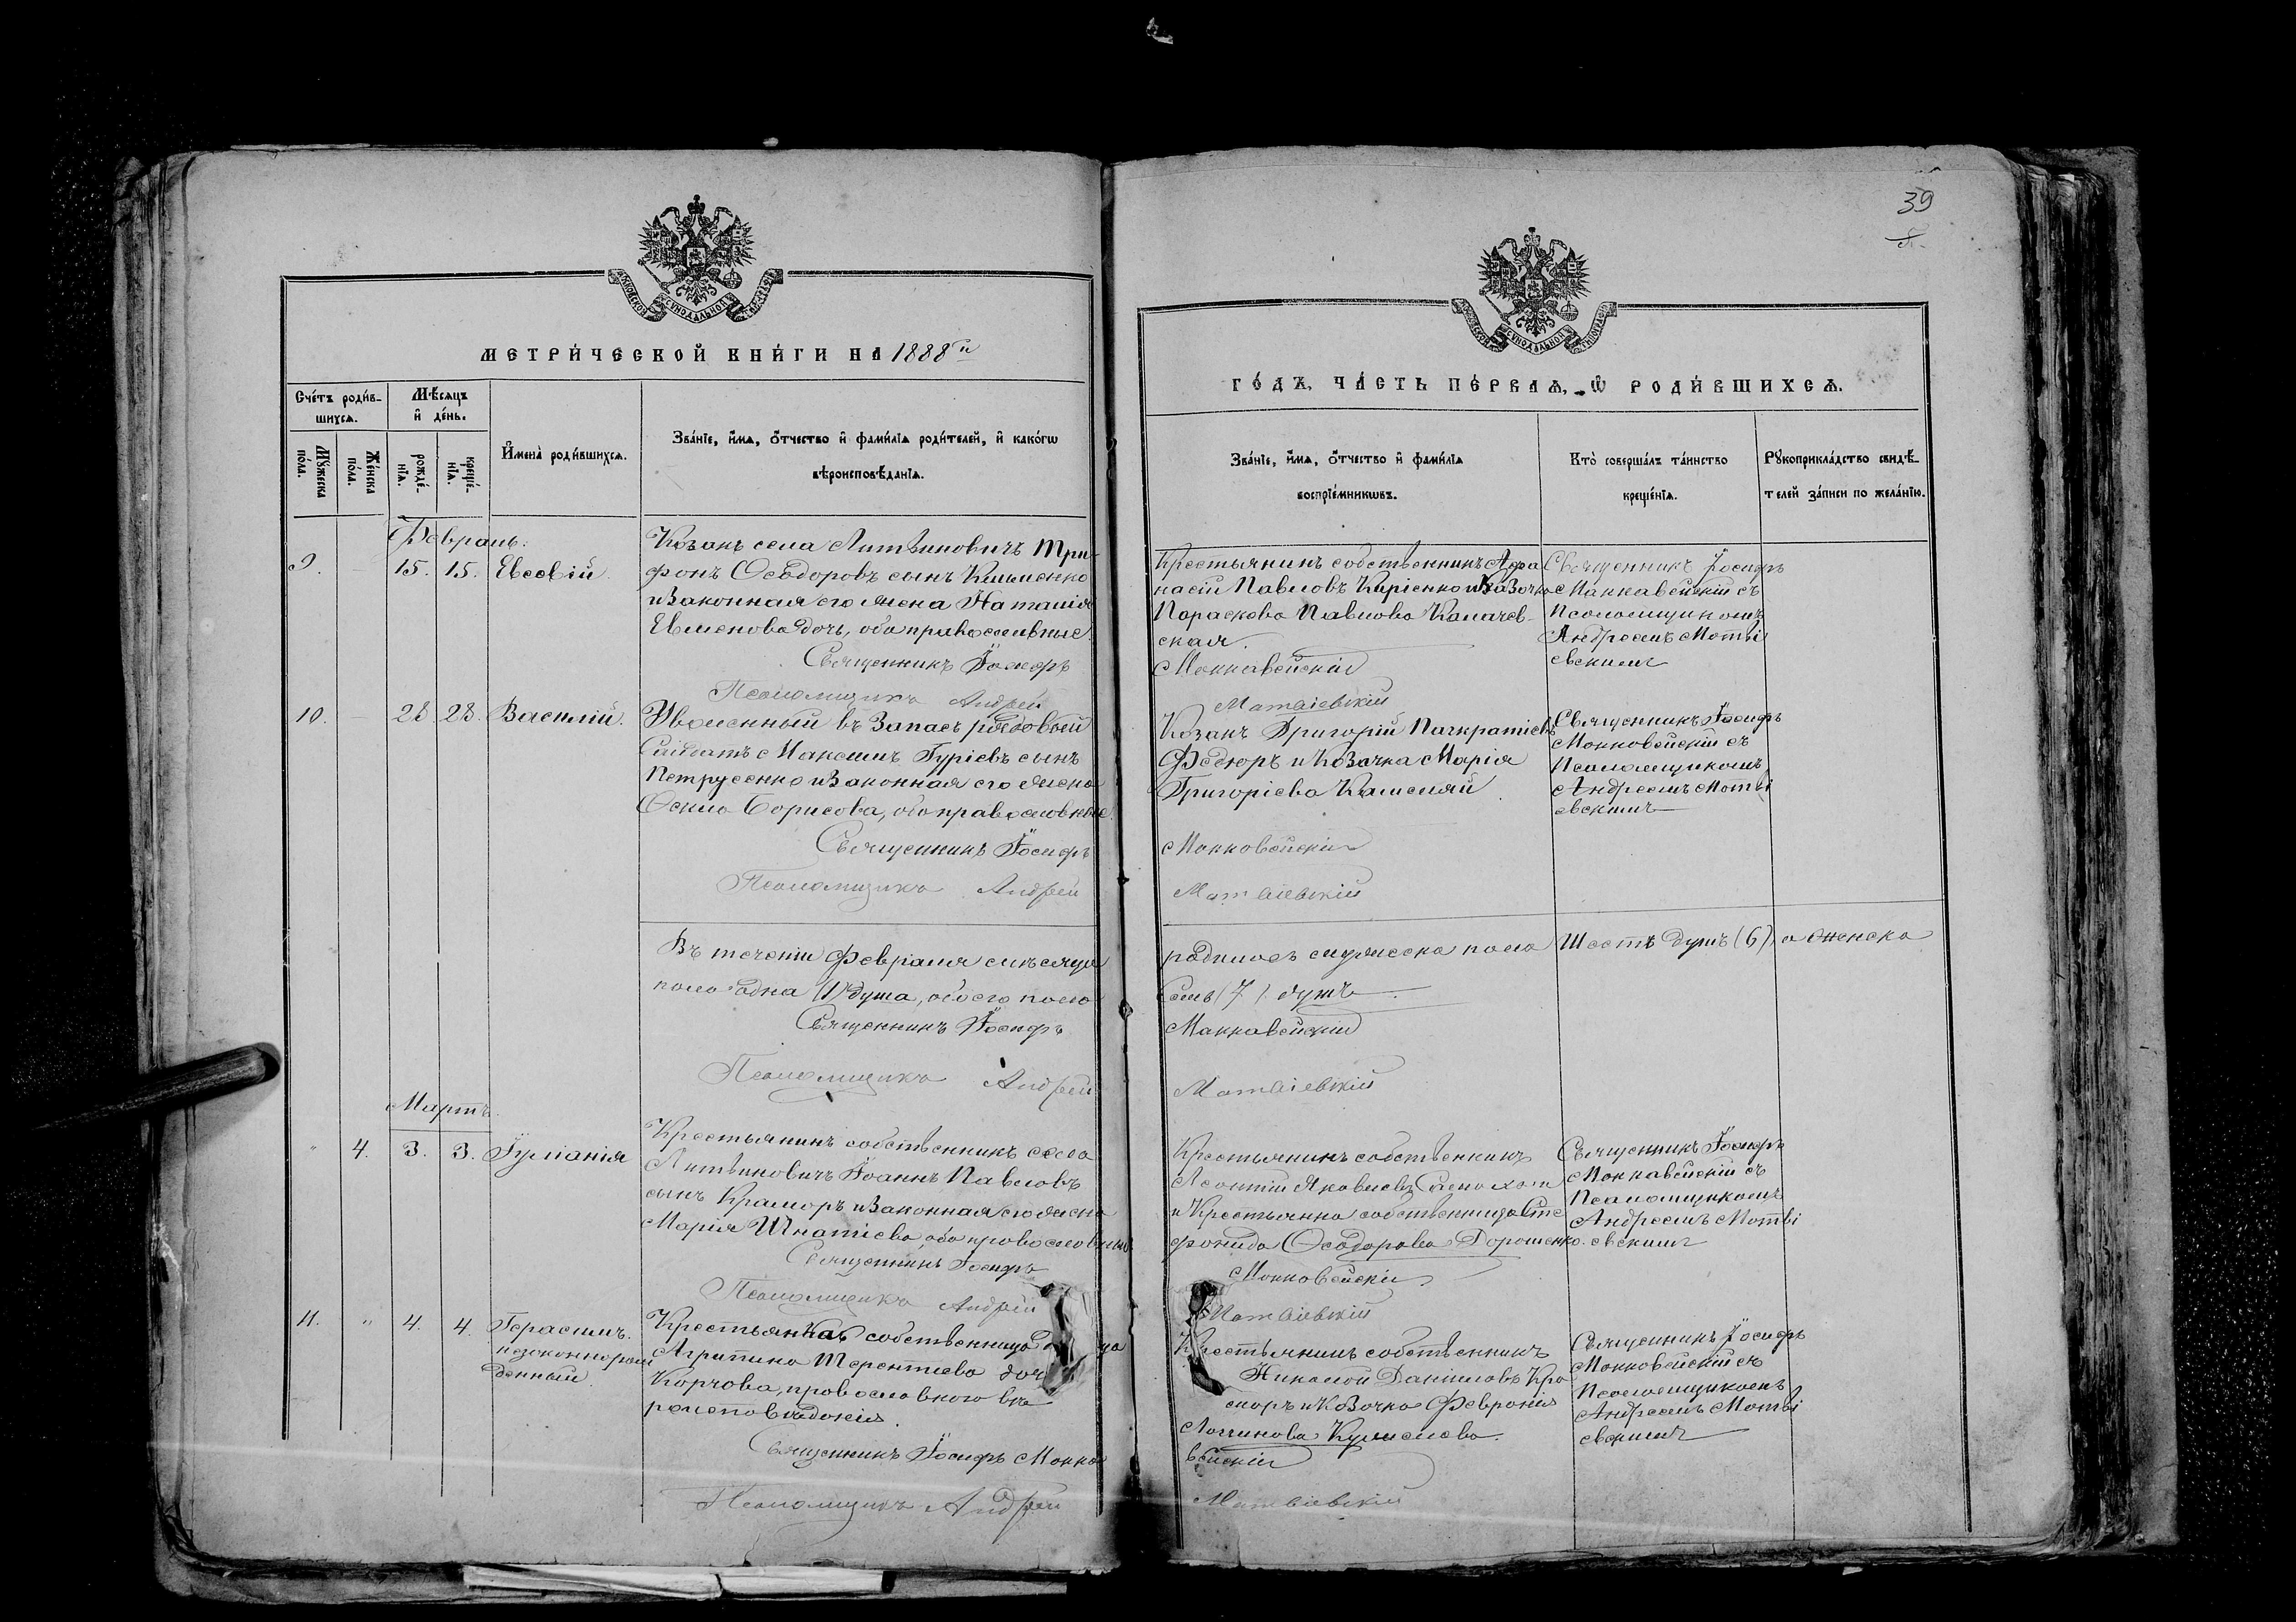 39
МЕТРИ́ЧЕСКОЙ КНИ́ГИ НА 1888й
ГО́ДЪ, ЧА́СТЬ ПЕ́РВАЯ, Ѡ РОДИ́ВШИХСЯ.
Сче́тъ роди́в-
шихся.
Мѣ́сяцъ
и҆ де́нь.
Мꙋ́жеска
по́ла.
Же́нска
по́ла.
рожде́-
нїѧ.
креще́-
нїѧ.
И҆мена̀ роди́вшихсѧ.
Зва́нїе, и҆́мѧ, ѻ҆́тчество и҆ фами́лїѧ роди́телей, и҆ како́гѡ
вѣроисповѣ́данїѧ.
Зва́нїе, и҆́мѧ, ѻ҆́тчество и҆ фами́лїѧ
воспрїе́мникѡвъ.
Кто̀ соверша́лъ та́инство
креще́нїѧ.
Рꙋкоприкла́дство свидѣ́-
телей за́писи по жела́нїю.
Февраль.
9. 15. 15. Евсевій
Козакъ села Литвиновичъ Три-
фонъ Ѳеодоровъ сынъ
и законная его жена Наталія
Евменова дочь, оба православные.
Священникъ Іосифъ
Псаломщикъ Андрей
Крестьянинъ собственникъ Афа
насій Павловъ Киріенко и козачка
Параскева Павлова
ская.
Маккавейскій
Матвіевскій
Священникъ Іосифъ
Маккавейскій съ
Псаломщикомъ
Андреемъ Матві
евскимъ
10. 28 28. Василій.
Уволенный въ запасъ рядовый
Солдатъ Максимъ Гуріевъ сынъ
Петрусенко и законная его жена
Борисова, оба православные.
Священникъ Іосифъ
Псаломщикъ Андрей
Козакъ Григорій Панкратіевъ
Федюръ и козачка Марія
Григоріева
Маккавейскій
Матвіевскій
Священникъ Іосифъ
Маккавейскій съ
Псаломщикомъ
Андреемъ Матві
евскимъ
Въ теченіи Февраля мѣсяца
родилось мужеска пола Шесть душъ (6), а женска
пола одна (1) душа, обоего пола
Семь (7) душъ.
Священникъ Іосифъ Маккавейскій
Псаломщикъ Андрей Матвіевскій
Мартъ.
" 4. 3. 3. Іуліанія
Крестьянинъ собственникъ села
Литвиновичъ Іоаннъ Павловъ
сынъ Краморъ и законная его жена
Марія Игнатіева, оба православные
Священникъ Іосифъ
Псаломщикъ Андрей
Крестьянинъ собственникъ
Леонтій Яковлевъ
и Крестьянка собственница Сте
фанида Ѳеодорова Дорошенко.
Маккавейскій
Матвіевскій
Священникъ Іосифъ
Маккавейскій съ
Псаломщикомъ
Андреемъ Матві
евскимъ
11. " 4. 4. Герасимъ.
незаконнорож
денный.
Крестьянка собственница
Агрипина Терентіева доч
Корчова, православного вѣ
роисповѣданія.
Священникъ Іосифъ Макка
Псаломщикъ Андрей
Крестьянинъ собственникъ
Николай Даниловъ Кра
моръ и козачка Февронія
Логинова
вейскій
Матвіевскій
Священникъ Іосифъ
Маккавейскій съ
Псаломщикомъ
Андреемъ Матві
евскимъ